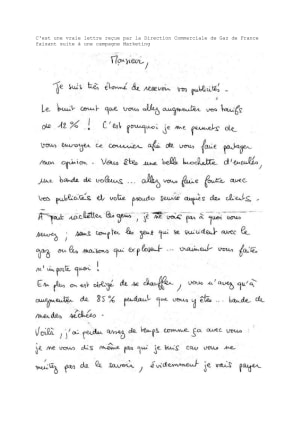 C'est une vraie lettre reçue par la Direction Commerciale de Gaz de France
faisant suite à une campagne Marketing
Monsieur,
Je suis très étonné de recevoir vos publicités.
Le bruit court que vous allez augmenter vos tarifs
de 12% ! C'est pourquoi je me permets de
vous envoyer ce courrier afin de vous faire partager
mon opinion. Vous êtes une belle brochette d'enculés,
une bande de voleurs... allez vous faire foutre avec
vos publicités et votre pseudo service auprès des clients.
À part racketter les gens, je ne vois pas à quoi vous
servez ; sans compter les gens qui se suicident avec le
gaz ou les maisons qui explosent... vraiment vous faites
n'importe quoi !
En plus on est obligé de se chauffer, vous n'avez qu'à
augmenter de 85% pendant que vous y êtes... bande de
merdes séchées.
Voilà, j'ai perdu assez de temps comme ça avec vous
je ne vous dis même pas qui je suis car vous ne
méritez pas de le savoir, évidemment je vais payer